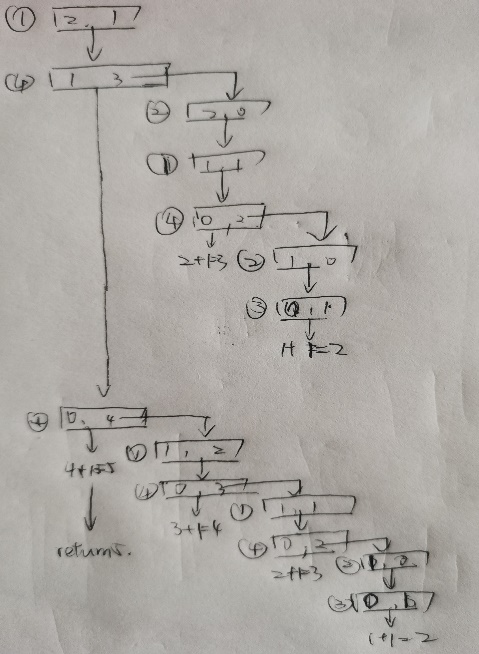 ① 2, 1
④ 1 3
② 2, 0
① 1, 1
④ 0, 2
2+1=3
② 1, 0
③ 0, 1
1+1=2
④ 0, 4
4+1=5
① 1, 2
④ 0 3
3+1=4
① 1, 1
return 5.
④ 0, 2
2+1=3
② 1, 0
③ 0, 1
1+1=2